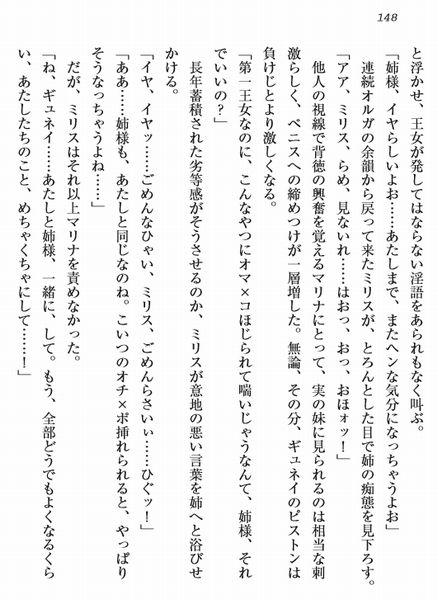 148
と浮かせ、王女が発してはならない淫語をあられもなく叫ぶ。
「姉様、イヤらしいよお……あたしまで、またヘンな気分になっちゃうよお」
連続オルガの余韻から戻って来たミリスが、とろんとした目で姉の痴態を見下ろす。
「アア、ミリス、らめ、見ないれ……はおっ、おっ、おほォッ！」
他人の視線で背徳の興奮を覚えるマリナにとって、実の妹に見られるのは相当な刺
激らしく、ペニスへの締めつけが一層増した。無論、その分、ギュネイのピストンは
負けじとより激しくなる。
「第一王女なのに、こんなやつにオマ×コほじられて喘いじゃうなんて、姉様、それ
でいいの？」
長年蓄積された劣等感がそうさせるのか、ミリスが意地の悪い言葉を姉へと浴びせ
かける。
「イヤ、イヤッ……ごめんなひゃい、ミリス、ごめんらさいぃ……ひグッ！」
「ああ……姉様も、あたしと同じなのね。こいつのオチ×ポ挿れられると、やっぱり
そうなっちゃうよね……」
だが、ミリスはそれ以上マリナを責めなかった。
「ね、ギュネイ……あたしと姉様、一緒に、して。もう、全部どうでもよくなるくら
い、あたしたちのこと、めちゃくちゃにして……！」